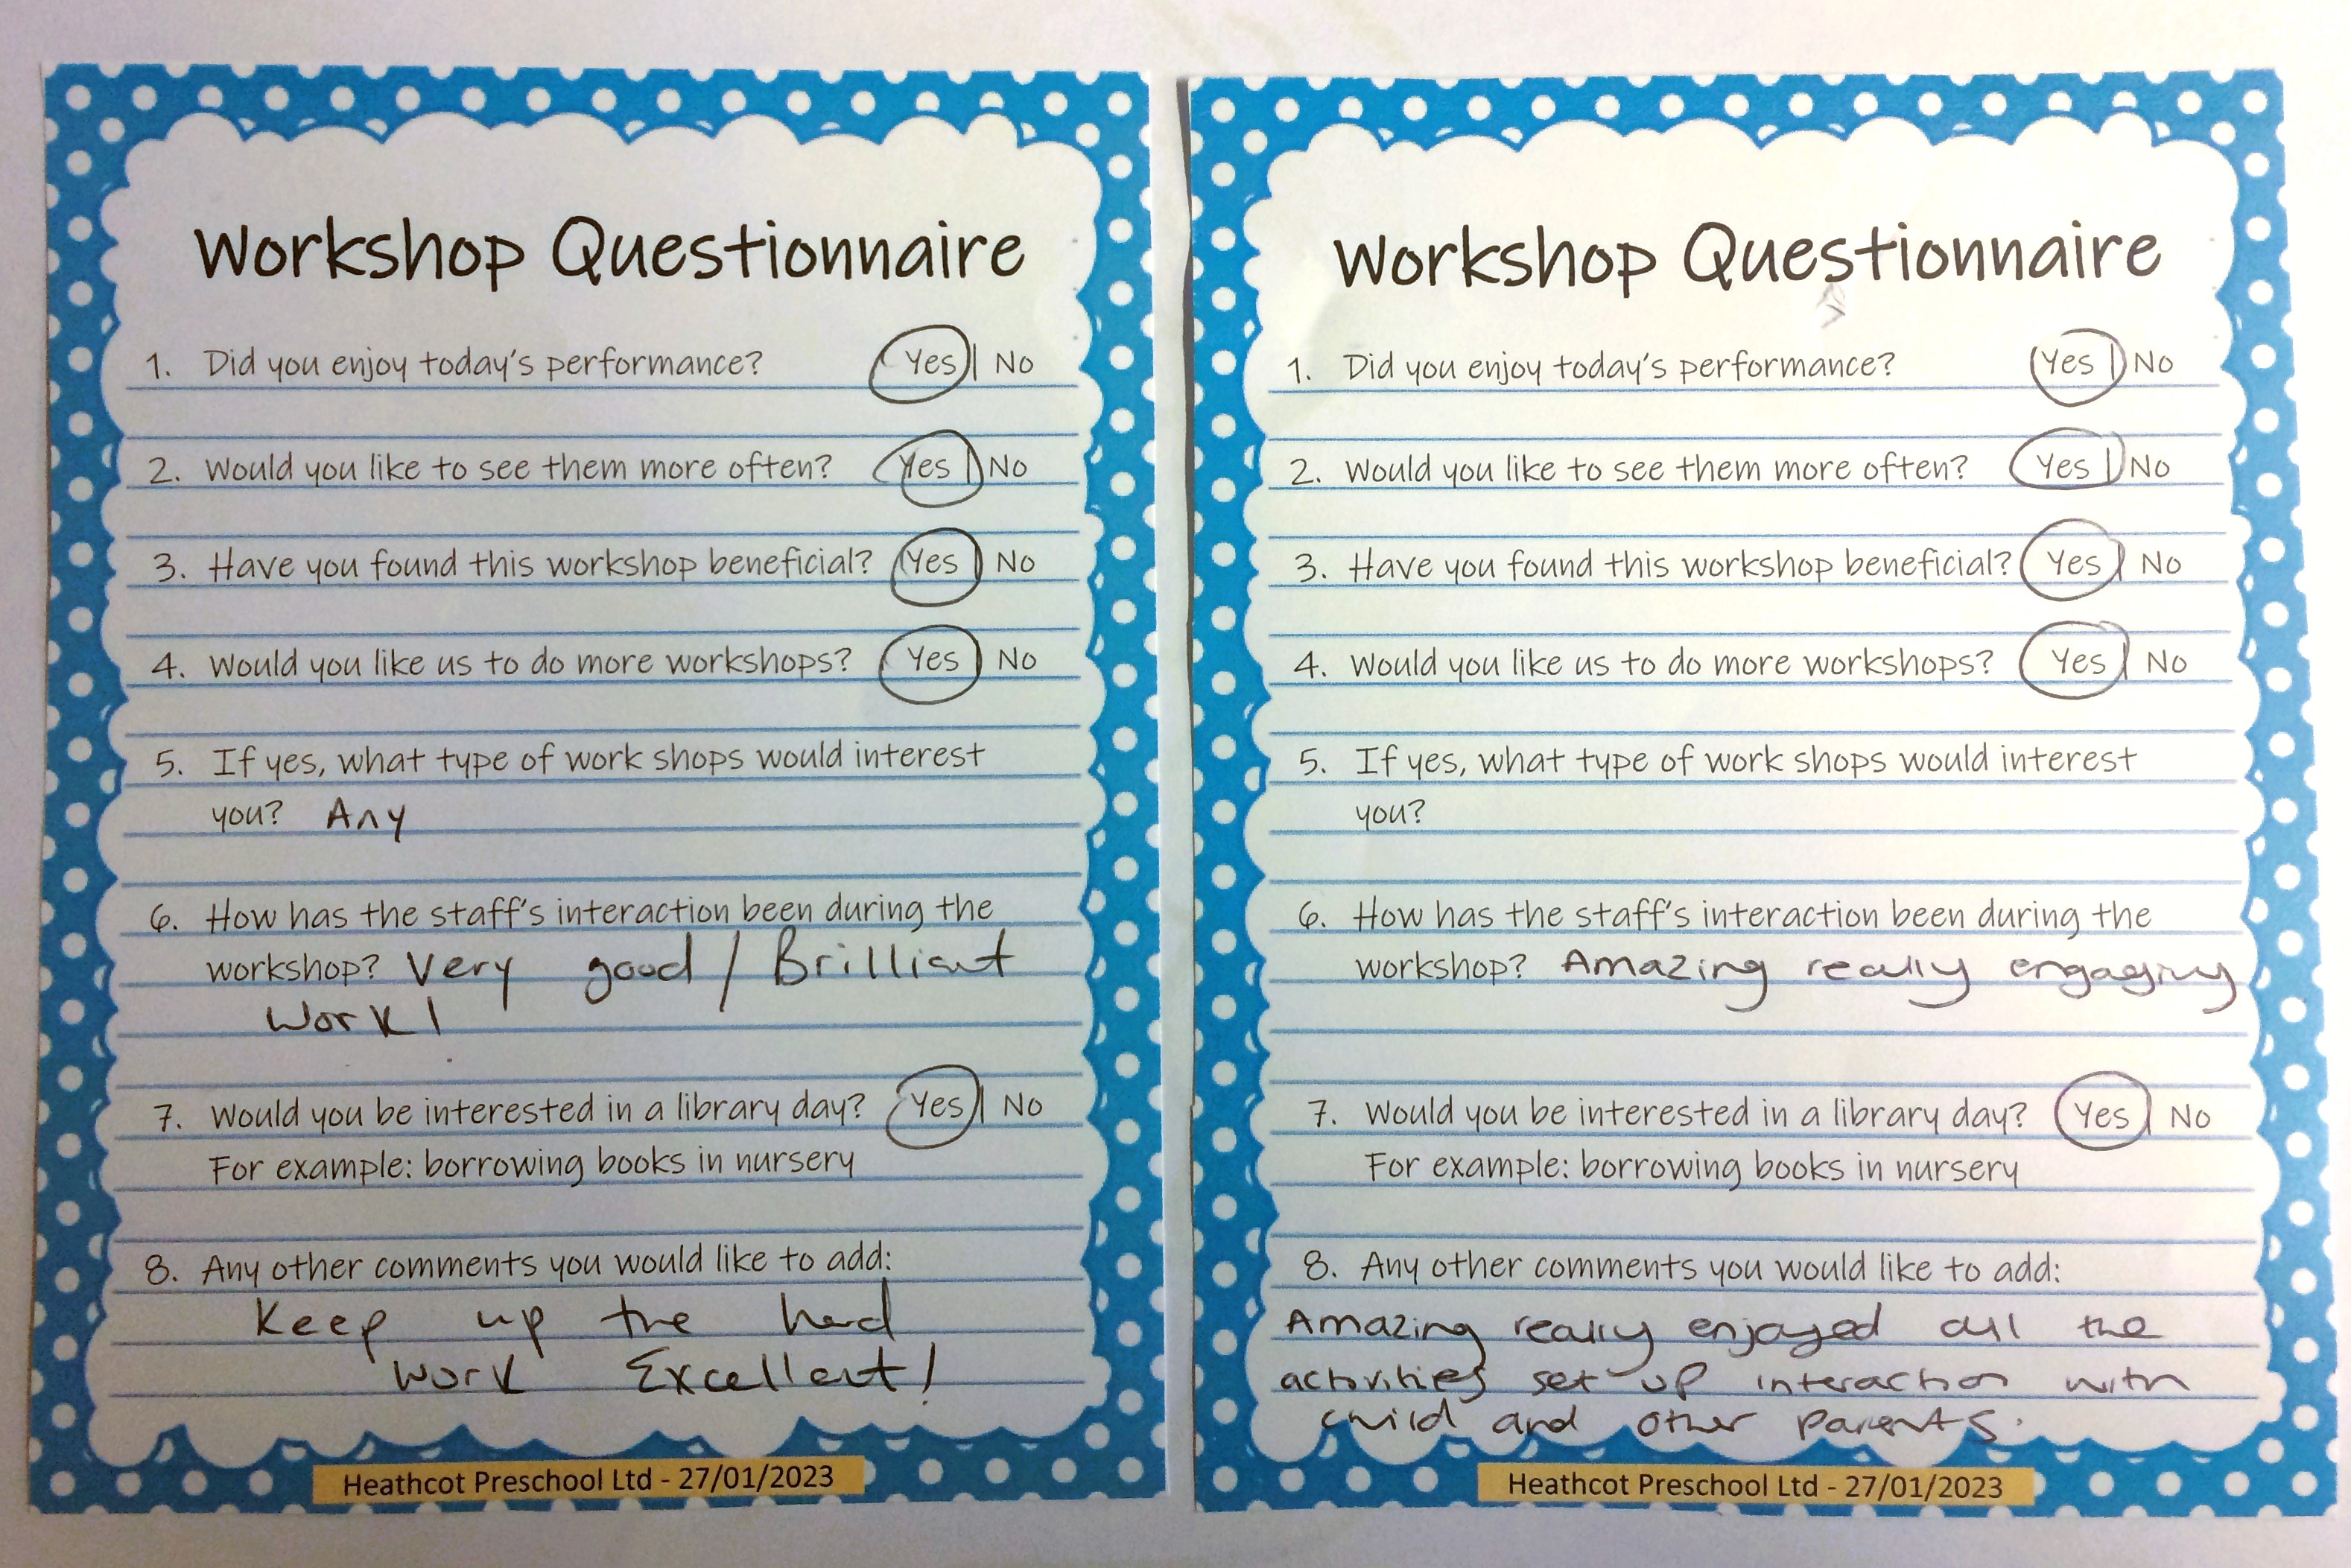 Workshop Questionnaire
1. Did you enjoy today's performance? Yes | No
2. Would you like to see them more often? Yes | No
3. Have you found this workshop beneficial? Yes | No
4. Would you like us to do more workshops? Yes | No
5. If yes, what type of work shops would interest
you? Any
6. How has the staff's interaction been during the
workshop? Very good / Brilliant
Work!
7. Would you be interested in a library day? Yes | No
For example: borrowing books in nursery
8. Any other comments you would like to add:
Keep up the hard
work Excellent!
Heathcot Preschool Ltd - 27/01/2023
Workshop Questionnaire
1. Did you enjoy today's performance? Yes | No
2. Would you like to see them more often? Yes | No
3. Have you found this workshop beneficial? Yes | No
4. Would you like us to do more workshops? Yes | No
5. If yes, what type of work shops would interest
you?
6. How has the staff's interaction been during the
workshop? Amazing really engaging
7. Would you be interested in a library day? Yes | No
For example: borrowing books in nursery
8. Any other comments you would like to add:
Amazing really enjoyed all the
activities set up interaction with
child and other parents.
Heathcot Preschool Ltd - 27/01/2023